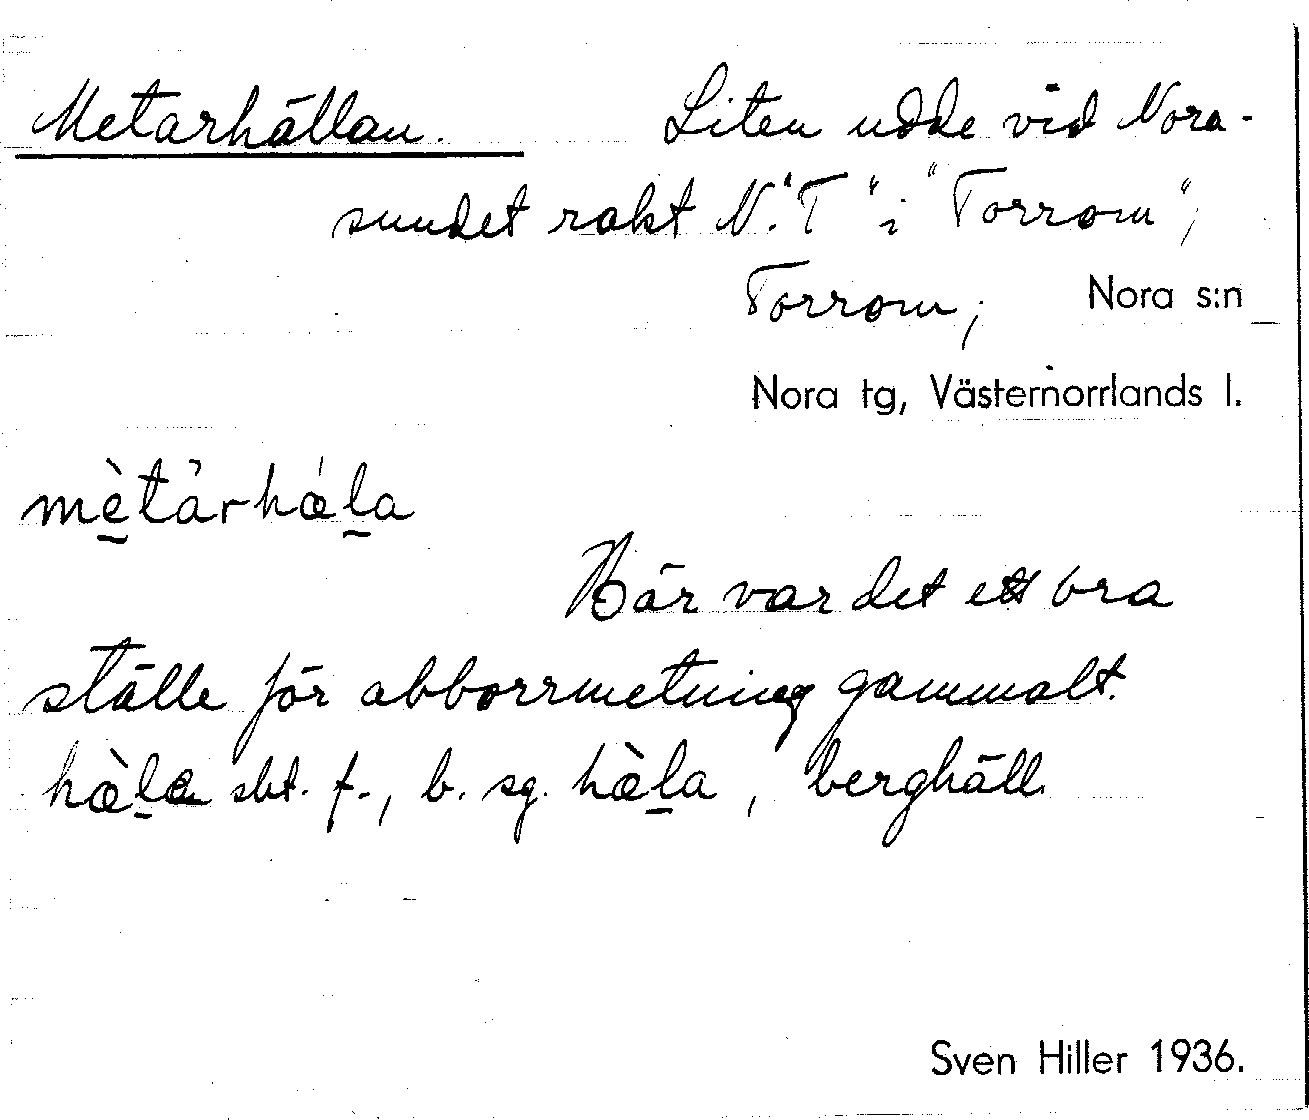 Metarhällan. Liten udde vid Nora-
sundet rakt N. "T" i "Torrom",
Torrom; Nora s:n
Nora tg, Västernorrlands l.
mètàrhǽla
Här var det ett bra
ställe för abborrmetning gammalt.
hæ̀la sbt. f., b. sg. hæ̀la, berghäll.
Sven Hiller 1936.